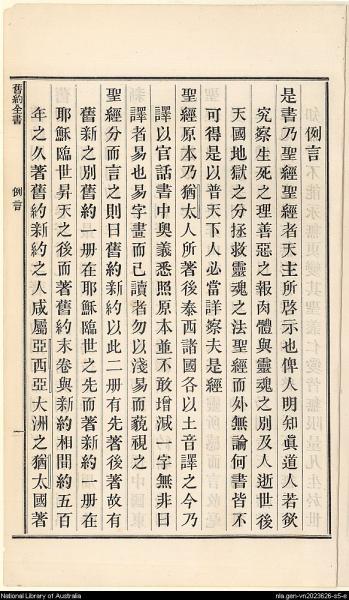 舊約全書
例言
一
例言
是書乃聖經聖經者天主所啓示也俾人明知眞道人若欲
究察生死之理善惡之報肉體與靈魂之別及人逝世後
天國地獄之分拯救靈魂之法聖經而外無論何書皆不
可得是以普天下人必當詳察夫是經
聖經原本乃猶太人所著後泰西諸國各以土音譯之今乃
譯以官話書中奧義悉照原本並不敢增減一字無非曰
譯者易也易字畫而已讀者勿以淺易而藐視之
聖經分而言之則曰舊約新約以此二册有先著後著故有
舊新之別舊約一册在耶穌臨世之先而著新約一册在
耶穌臨世昇天之後而著舊約末卷與新約相間約五百
年之久著舊約新約之人咸屬亞西亞大洲之猶太國著
National Library of Australia
nla.gen-vn2023626-s5-e